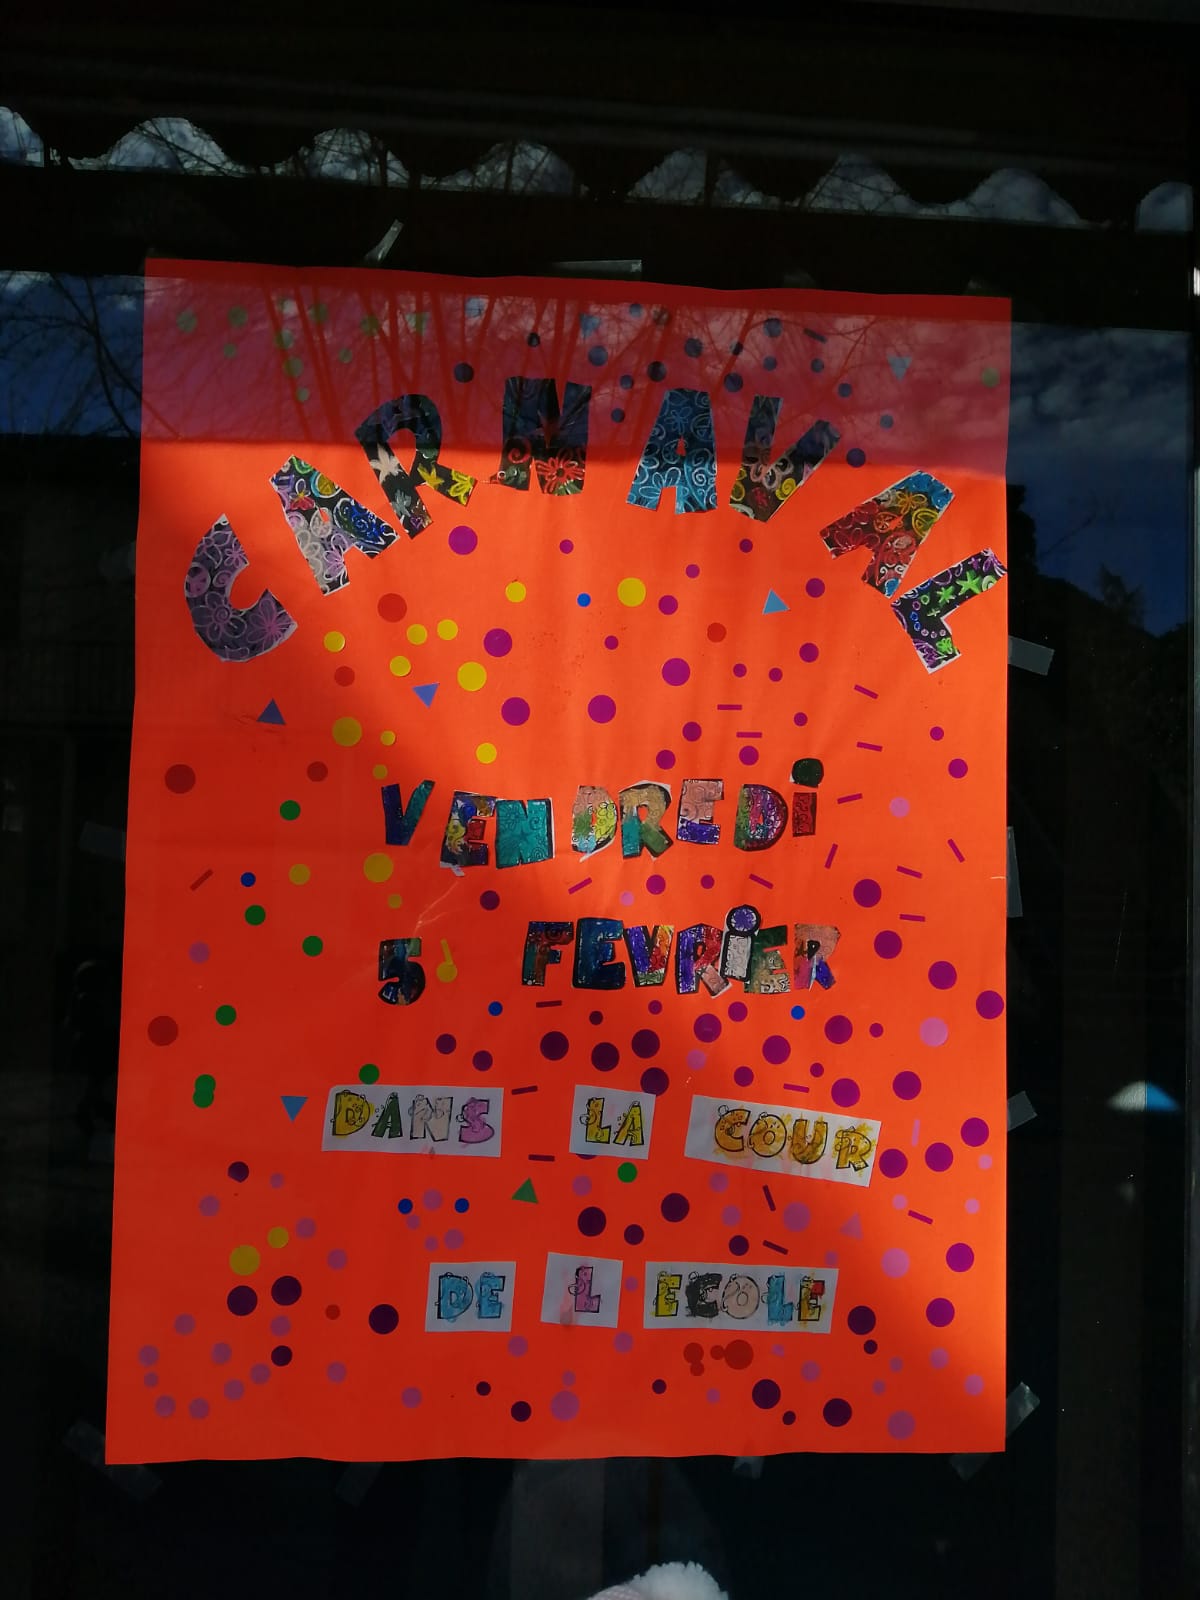 CARNAVAL
VENDREDi
5 FEVRiER
DANS LA COUR
DE L ECOLE